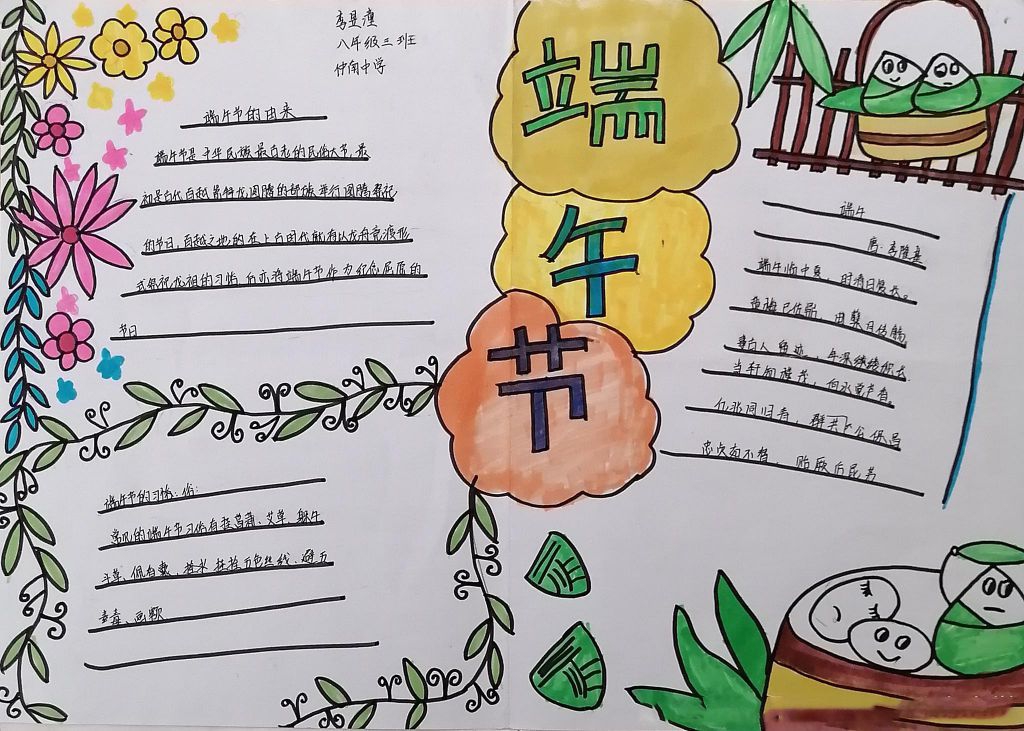 八年级三班
仲南中学
端午节的由来
端午节是中华民族最古老的民俗大节,最
初是古代百越崇拜龙图腾的部族举行图腾祭祀
的节日,百越之地的在上古时代就有以龙舟竞渡形
式祭祀龙祖的习俗 后亦将端午节作为纪念屈原的
节日
端午节的习俗:
常见的端午节习俗有挂菖蒲、艾草
斗草、佩香囊、拴五色丝线、避五
毒、画额
端
午
节
端午
唐·李隆基
端午临中夏,时清日复长。
盐梅已佐鼎 曲糵且传觞
事古人留迹,年深缕积长
当轩知槿茂,向水觉芦香
亿兆同归寿,群公共保昌
忠贞如不替,贻厥后昆芳